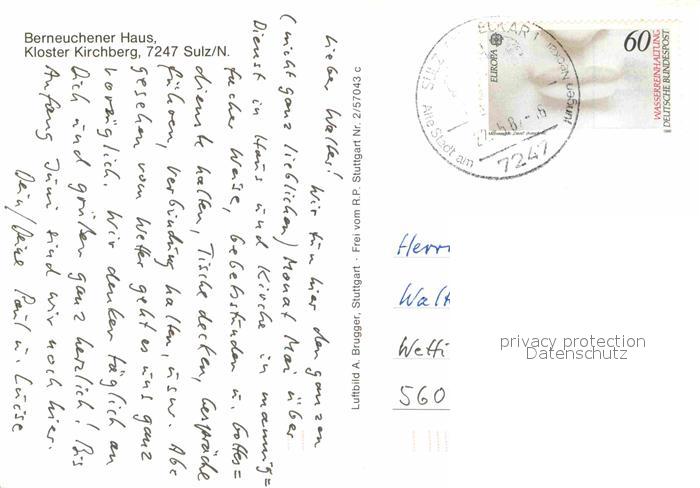 Berneuchener Haus,
Kloster Kirchberg, 7247 Sulz/N.
Lieber Walter! Wir tun hier den ganzen
(nicht ganz lieblichen) Monat Mai über
Dienst in Haus und Kirche in mannig=
facher Weise, Gebetsstunden u. Gottes=
dienste halten, Tische decken, Gespräche
führen, Verbindung halten, usw. Abge
sehen vom Wetter geht es uns ganz
vorzüglich. Wir denken täglich an
Dich und grüßen ganz herzlich! Bis
Anfang Juni sind wir noch hier.
Dein/Deine Paul u. Luise
Luftbild A. Brugger, Stuttgart · Frei vom R.P. Stuttgart Nr. 2/57043 c
SULZ
Alte Stadt am
7247
EUROPA
60
WASSERREINHALTUNG
DEUTSCHE BUNDESPOST
Herr
Walt
Wetti
560
privacy protection
Datenschutz